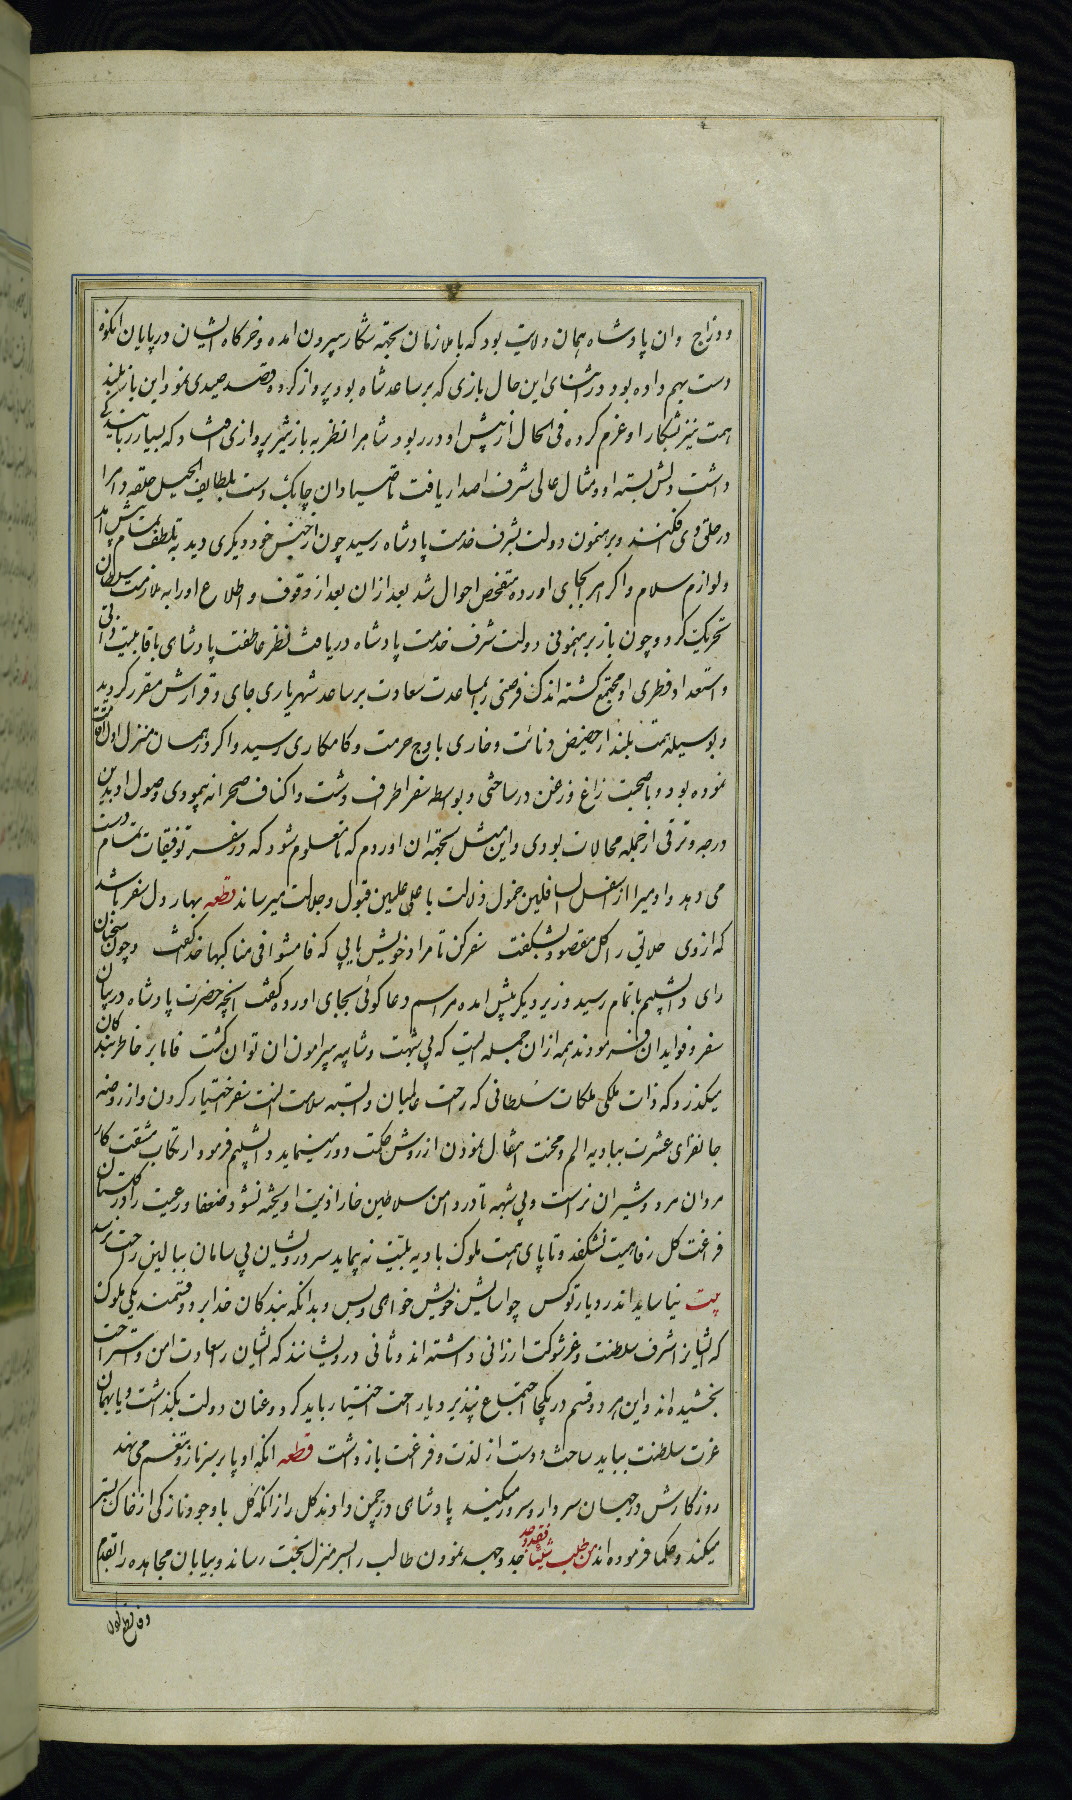 و دراج وان پادشاه همان ولایت بود که با ملازمان بجهته شکار بیرون امده و خرکاه ایشان در پایان انکوه
دست بهم داده بود در اثنای این حال بازی که بر ساعد شاه بود پرواز کرده قصد صیدی نمود این باز بلند
همت نیز بشکار او عزم کرده فی الحال از پیش او در ربود شاه را نظر به باز تیز پروازی افتاد که بسیار
داشت دلش بسته او و مثال عالی شرف اصدار یافت تا صیادان چابک دست بلطایف الحیل حلقه دام را
در حلق وی افکنند و برهنمون دولت بشرف خدمت پادشاه رسید چون از جنس خود دیکری دید به تلطف تمام پیش امد
و لوازم سلام و اکرام بجای اورده متفحص احوال شد بعد ازان بعد از وقوف و اطلاع اورا به ملازمت سلطان
تحریک کرد و چون باز برهنمونی دولت شرف خدمت پادشاه دریافت نظر عاطفت پادشاهی با قابلیت ذاتی
و استعداد فطری او مجتمع کشته اندک فرصتی را بمساعدت سعادت بر ساعد شهریاری جای و قرارش مقرر کردید
و بوسیله همت بلند از حضیض دنائت و خاری باوج حرمت و کامکاری رسید و اکر در همان منزل اول اقامت
نموده بود و با صحبت زاغ و زغن در ساختی و بواسطه سفر اطراف دشت و اکناف صحرا نه پیمودی وصول او بدین
درجه و ترقی از جمله محالات بودی و این مثل بجهته ان اوردم که تا معلوم شود که در سفر توفیقات تمام دست
می دهد و ادمی را از اسفل السافلین خمول و ذلالت با علی علیین قبول و جلالت میرساند قطعه بهار دل سفر باشد
که از وی حلاتی را کل مقصود بشکفت سفر کن تا مراد خویش یابی که فامشوا فی مناکبها خدا کفت و چون سخنان
رای دابشلیم باتمام رسید وزیر دیکر پیش امده مراسم دعا کوئی بجای اورده کفت انچه حضرت پادشاه در بیان
سفر و فواید ان فرمودند همه ازان جمله است که بی شبهت و شایبه پیرامون ان توان کشت فاما بر خاطر بندکان
میکذرد که ذات ملکی ملکات سلطانی که راحت عالمیان وابسته سلامت انست سفر اختیار کردن و از روضه
جانفزای عشرت ببادیه الم و محنت انتقال نمودن از روش حکمت دور مینماید دابشلیم فرمود ارتکاب مشقت کار
مردان مرد و شیران نراست و بی شبهه تا در دامن سلاطین خار اذیت اویخته نشود ضعفا و رعیت را در کلستان
فراغت کل رفاهیت نشکفد و تا پای همت ملوک بادیه بلیت نه پیماید سر درویشان بی سامان ببالین راحت نرسد
بیت نیاساید اندر دیار تو کس چو اسایش خویش خواهی و بس و بدانکه بندکان خدا بر دو قسمند یکی ملوک
که ایشانرا شرف سلطنت و عز شوکت ارزانی داشته اند و ثانی درویشانند که ایشان را سعادت امن و استراحت
بخشیده اند و این هر دو قسم در یکجا اجتماع نپذیرد یا راحت اختیار باید کرد و عنان دولت بکذاشت و یا بهمان
عزت سلطنت بباید ساخت و دست از لذت و فراغت باز داشت قطعه انکه او پا بر سر ناز و تنعم می نهد
روزکارش در جهان سردار و سرور میکند پادشاهی در چمن دادند کل را زانکه کل با وجود نازکی از خاک بستر
میکند و حکما فرموده اند من طلب شیئا فقد وجد جد و جهد نمودن طالب را بسر منزل بخت رساند و بیابان مجاهده را بقدم